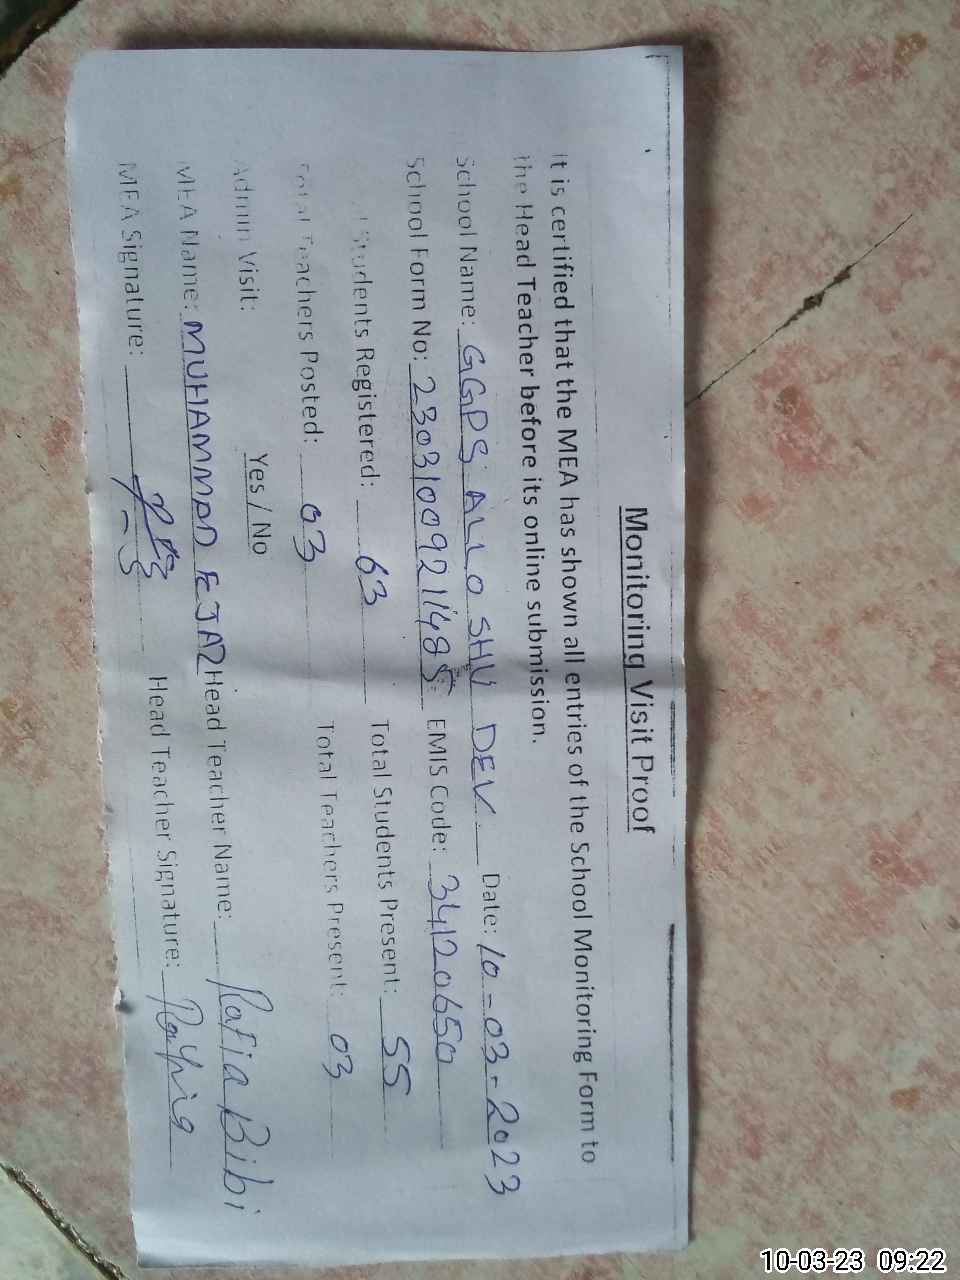 Monitoring Visit Proof
It is certified that the MEA has shown all entries of the School Monitoring Form to
the Head Teacher before its online submission.
School Name: GGPS ALLO SHU DEV. Date: 10-03-2023
School Form No: 23031009211485 EMIS Code: 34120650
Students Registered: 63 Total Students Present: 55
Total Teachers Posted: 03 Total Teachers Present: 03
Admin Visit: Yes / No
MEA Name: MUHAMMAD EJAZ Head Teacher Name: Rafia Bibi
MEA Signature: Head Teacher Signature:
10-03-23 09:22